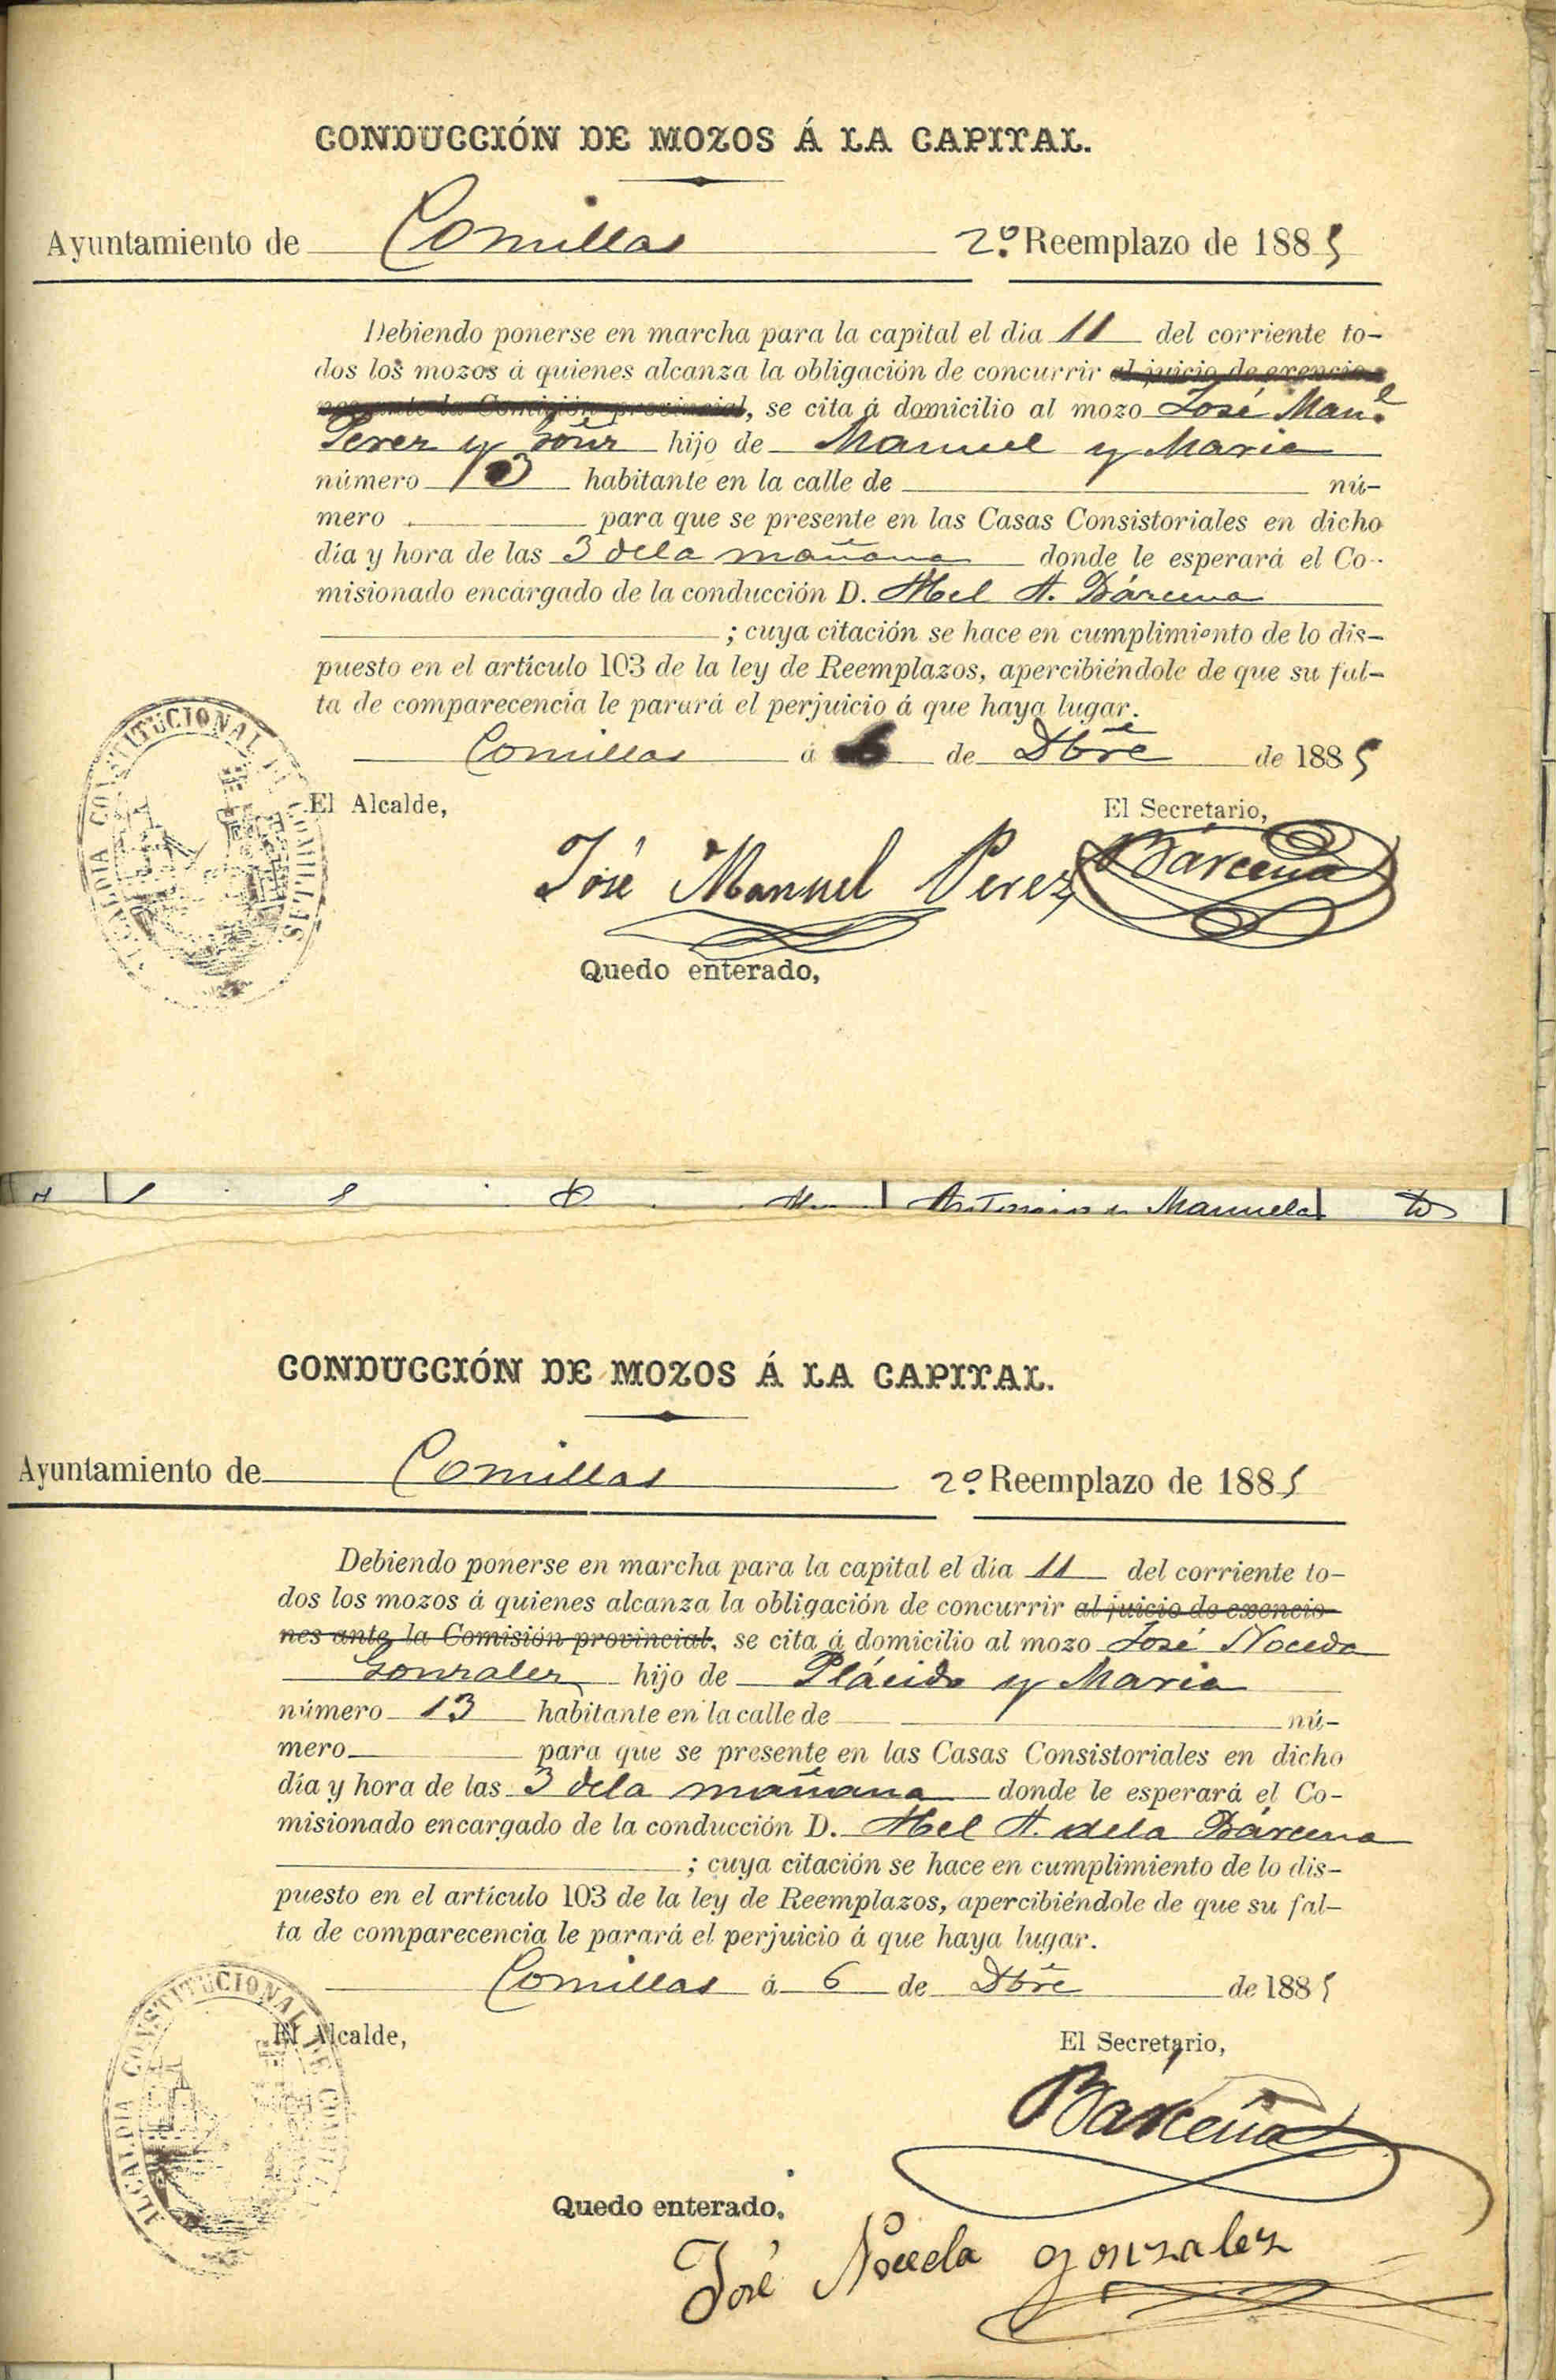 CONDUCCIÓN DE MOZOS Á LA CAPITAL.
Ayuntamiento de Comillas 2.º Reemplazo de 1885
Debiendo ponerse en marcha para la capital el dia 11 del corriente to-
dos los mozos á quienes alcanza la obligación de concurrir al juicio de exencio-
nes ante la Comisión provincial, se cita á domicilio al mozo José Man.l
Perez y hijo de Manuel y Maria
número 13 habitante en la calle de nú-
mero para que se presente en las Casas Consistoriales en dicho
día y hora de las 3 dela mañana donde le esperará el Co-
misionado encargado de la conducción D. Abel A. Bárcena
; cuya citación se hace en cumplimiento de lo dis-
puesto en el artículo 103 de la ley de Reemplazos, apercibiéndole de que su fal-
ta de comparecencia le parará el perjuicio á que haya lugar.
Comillas á 6 de Dbre de 1885
El Alcalde, El Secretario,
José Manuel Perez Bárcena
Quedo enterado,
ALCALDIA CONSTITUCIONAL DE COMILLAS
Antonio y Manuela
CONDUCCIÓN DE MOZOS Á LA CAPITAL.
Ayuntamiento de Comillas 2.º Reemplazo de 1885
Debiendo ponerse en marcha para la capital el día 11 del corriente to-
dos los mozos á quienes alcanza la obligación de concurrir al juicio de exencio-
nes ante la Comisión provincial, se cita á domicilio al mozo José Noceda
Gonzalez hijo de Plácido y Maria
número 13 habitante en la calle de nú-
mero para que se presente en las Casas Consistoriales en dicho
día y hora de las 3 dela mañana donde le esperará el Co-
misionado encargado de la conducción D. Abel A. dela Bárcena
; cuya citación se hace en cumplimiento de lo dis-
puesto en el artículo 103 de la ley de Reemplazos, apercibiéndole de que su fal-
ta de comparecencia le parará el perjuicio á que haya lugar.
Comillas á 6 de Dbre de 1885
El Alcalde, El Secretario,
Bárcena
ALCALDIA CONSTITUCIONAL DE COMILLAS
Quedo enterado,
José Noceda gonzalez